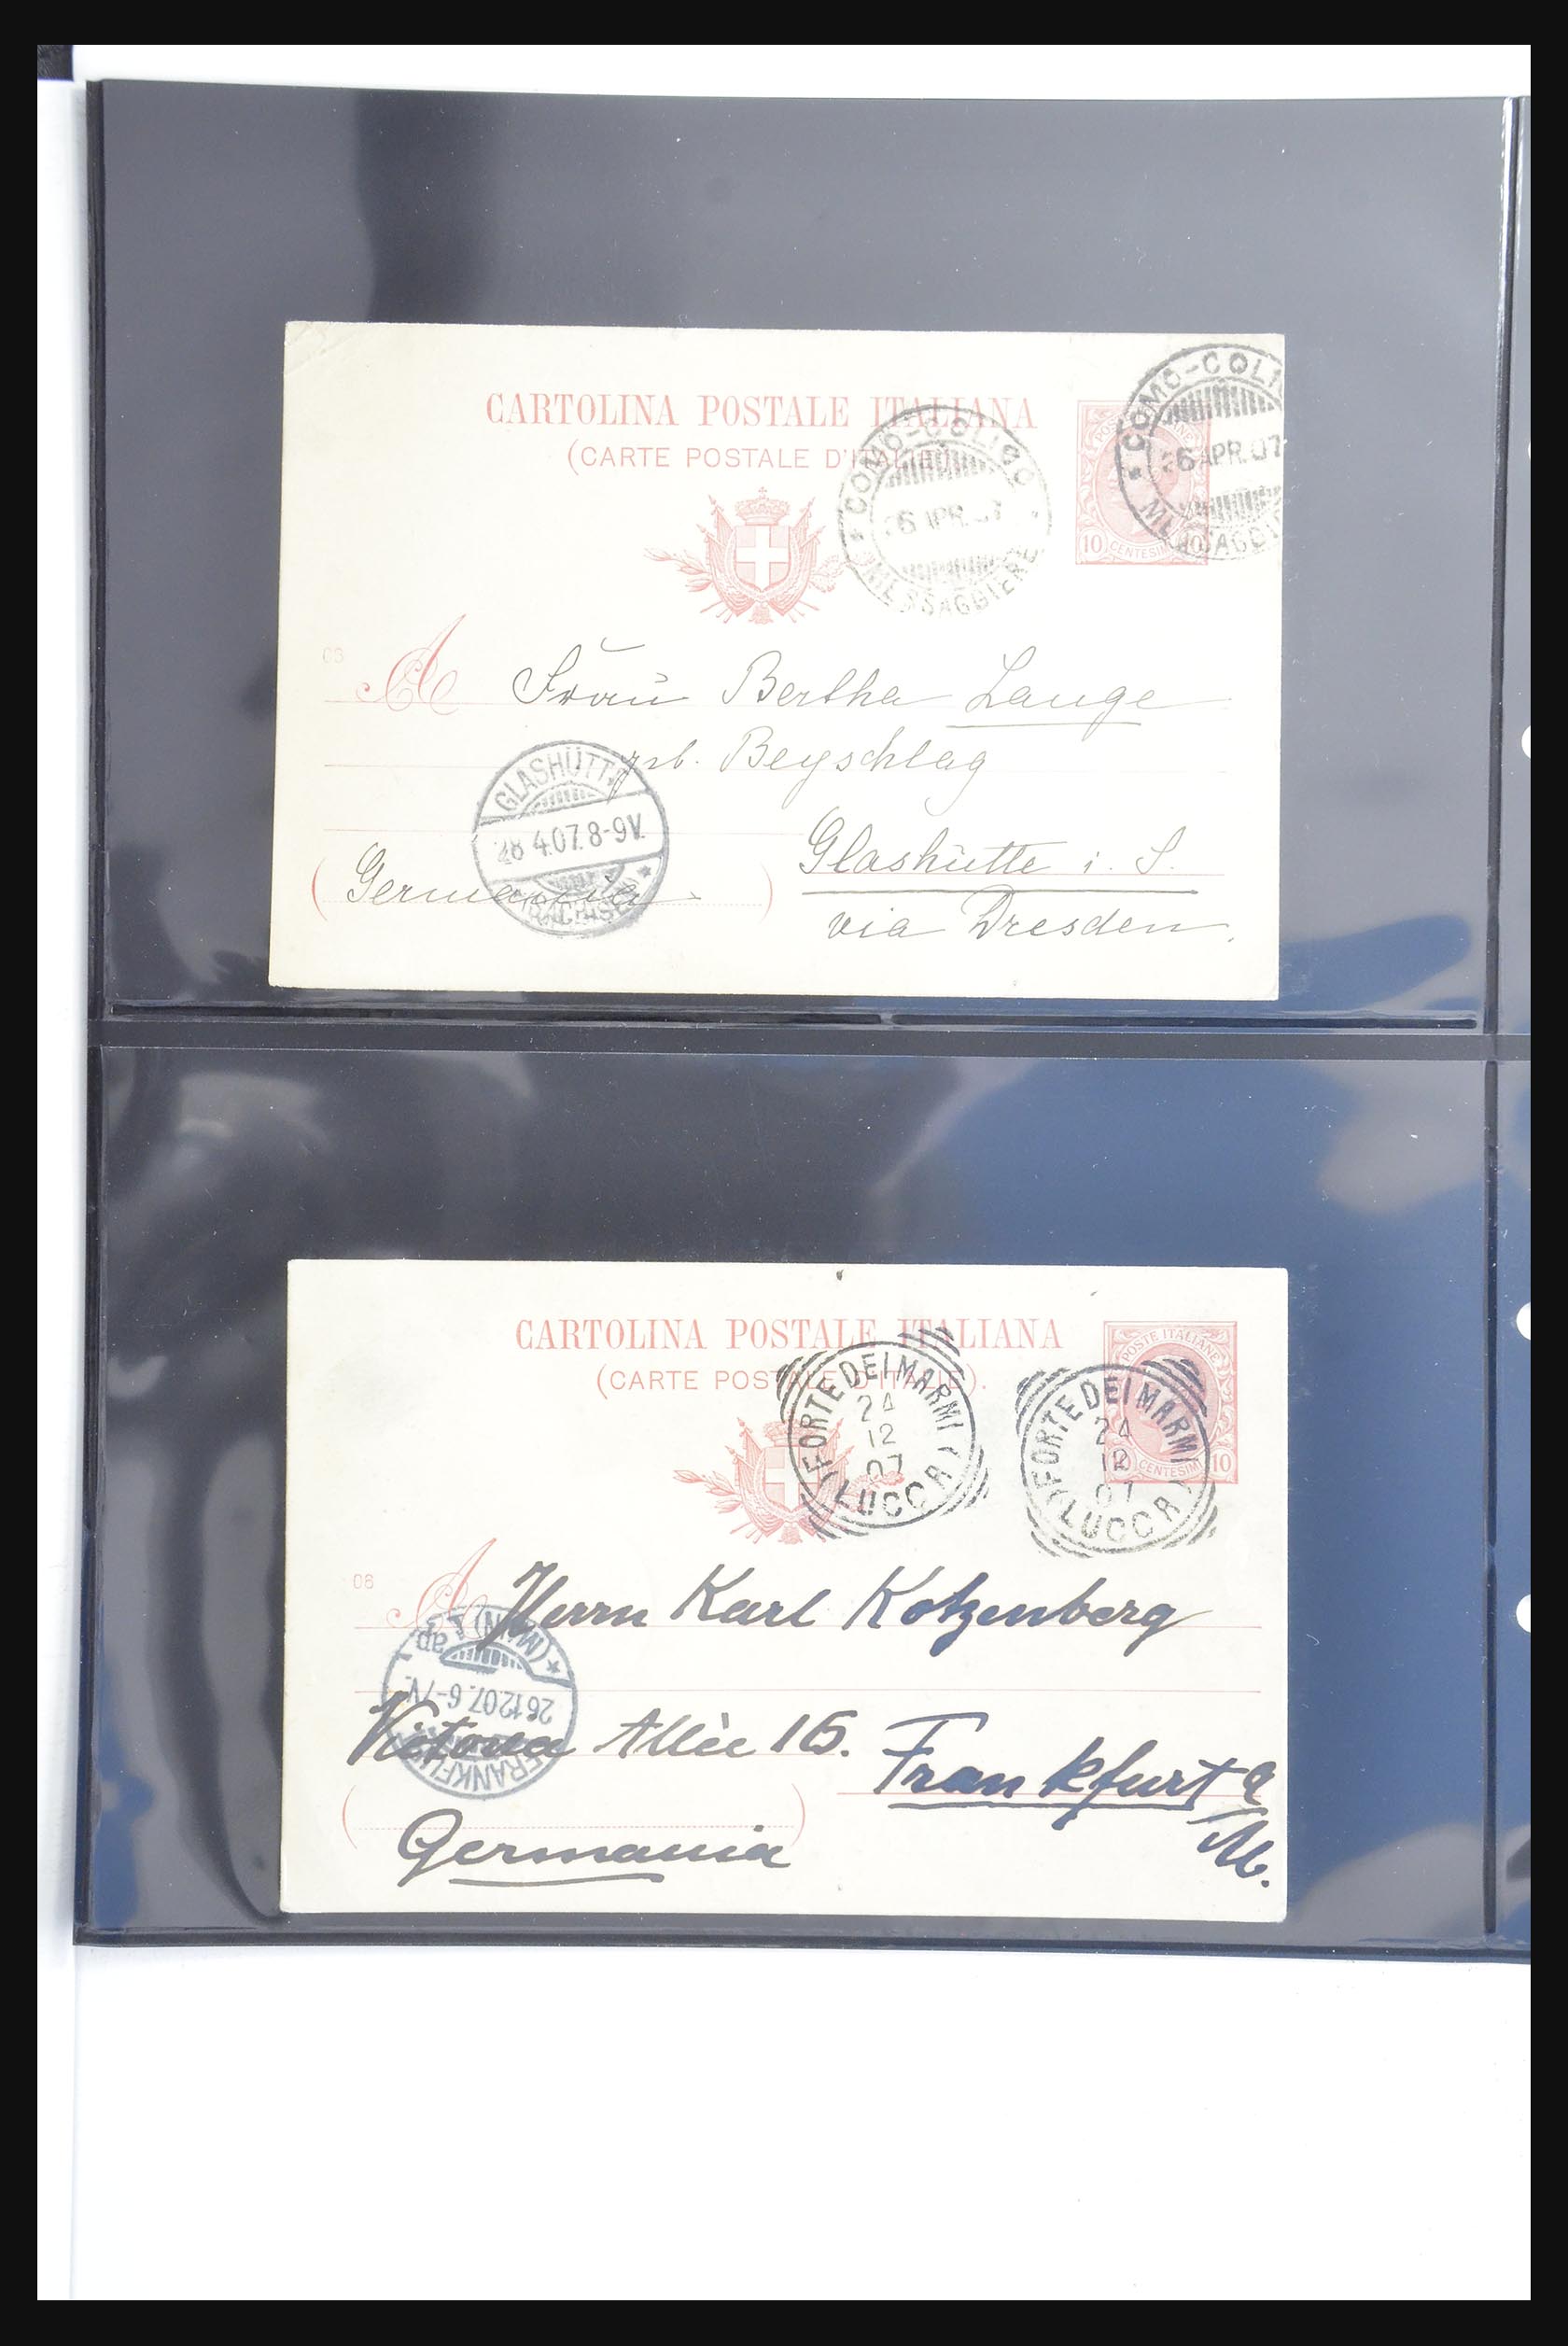 CARTOLINA POSTALE ITALIANA
(CARTE POSTALE D'ITALIE).
COMO-COLICO
26 APR. 07
MESSAGGIERE
COMO-COLI
26 APR. 07
MESSAGGI
POSTE ITALIANE
10 CENTESIMI 10
06
A
Frau Bertha Lange
geb. Beyschlag
GLASHÜTTE
28 4.07. 8-9V.
(SACHSEN)
Glashütte i. S.
(Germania)
via Dresden.
CARTOLINA POSTALE ITALIANA
(CARTE POSTALE D'ITALIE).
POSTE ITALIANE
CENTESIMI 10
FORTE DEI MARMI
24
12
07
(LUCCA)
FORTE DEI MARMI
24
12
07
(LUCCA)
06
A
Herrn Karl Kotzenberg
FRANKFURT
26.12.07. 6-7V.
(MAIN) 1
ap
Victoria Allée 16.
Frankfurt a/M.
Germania